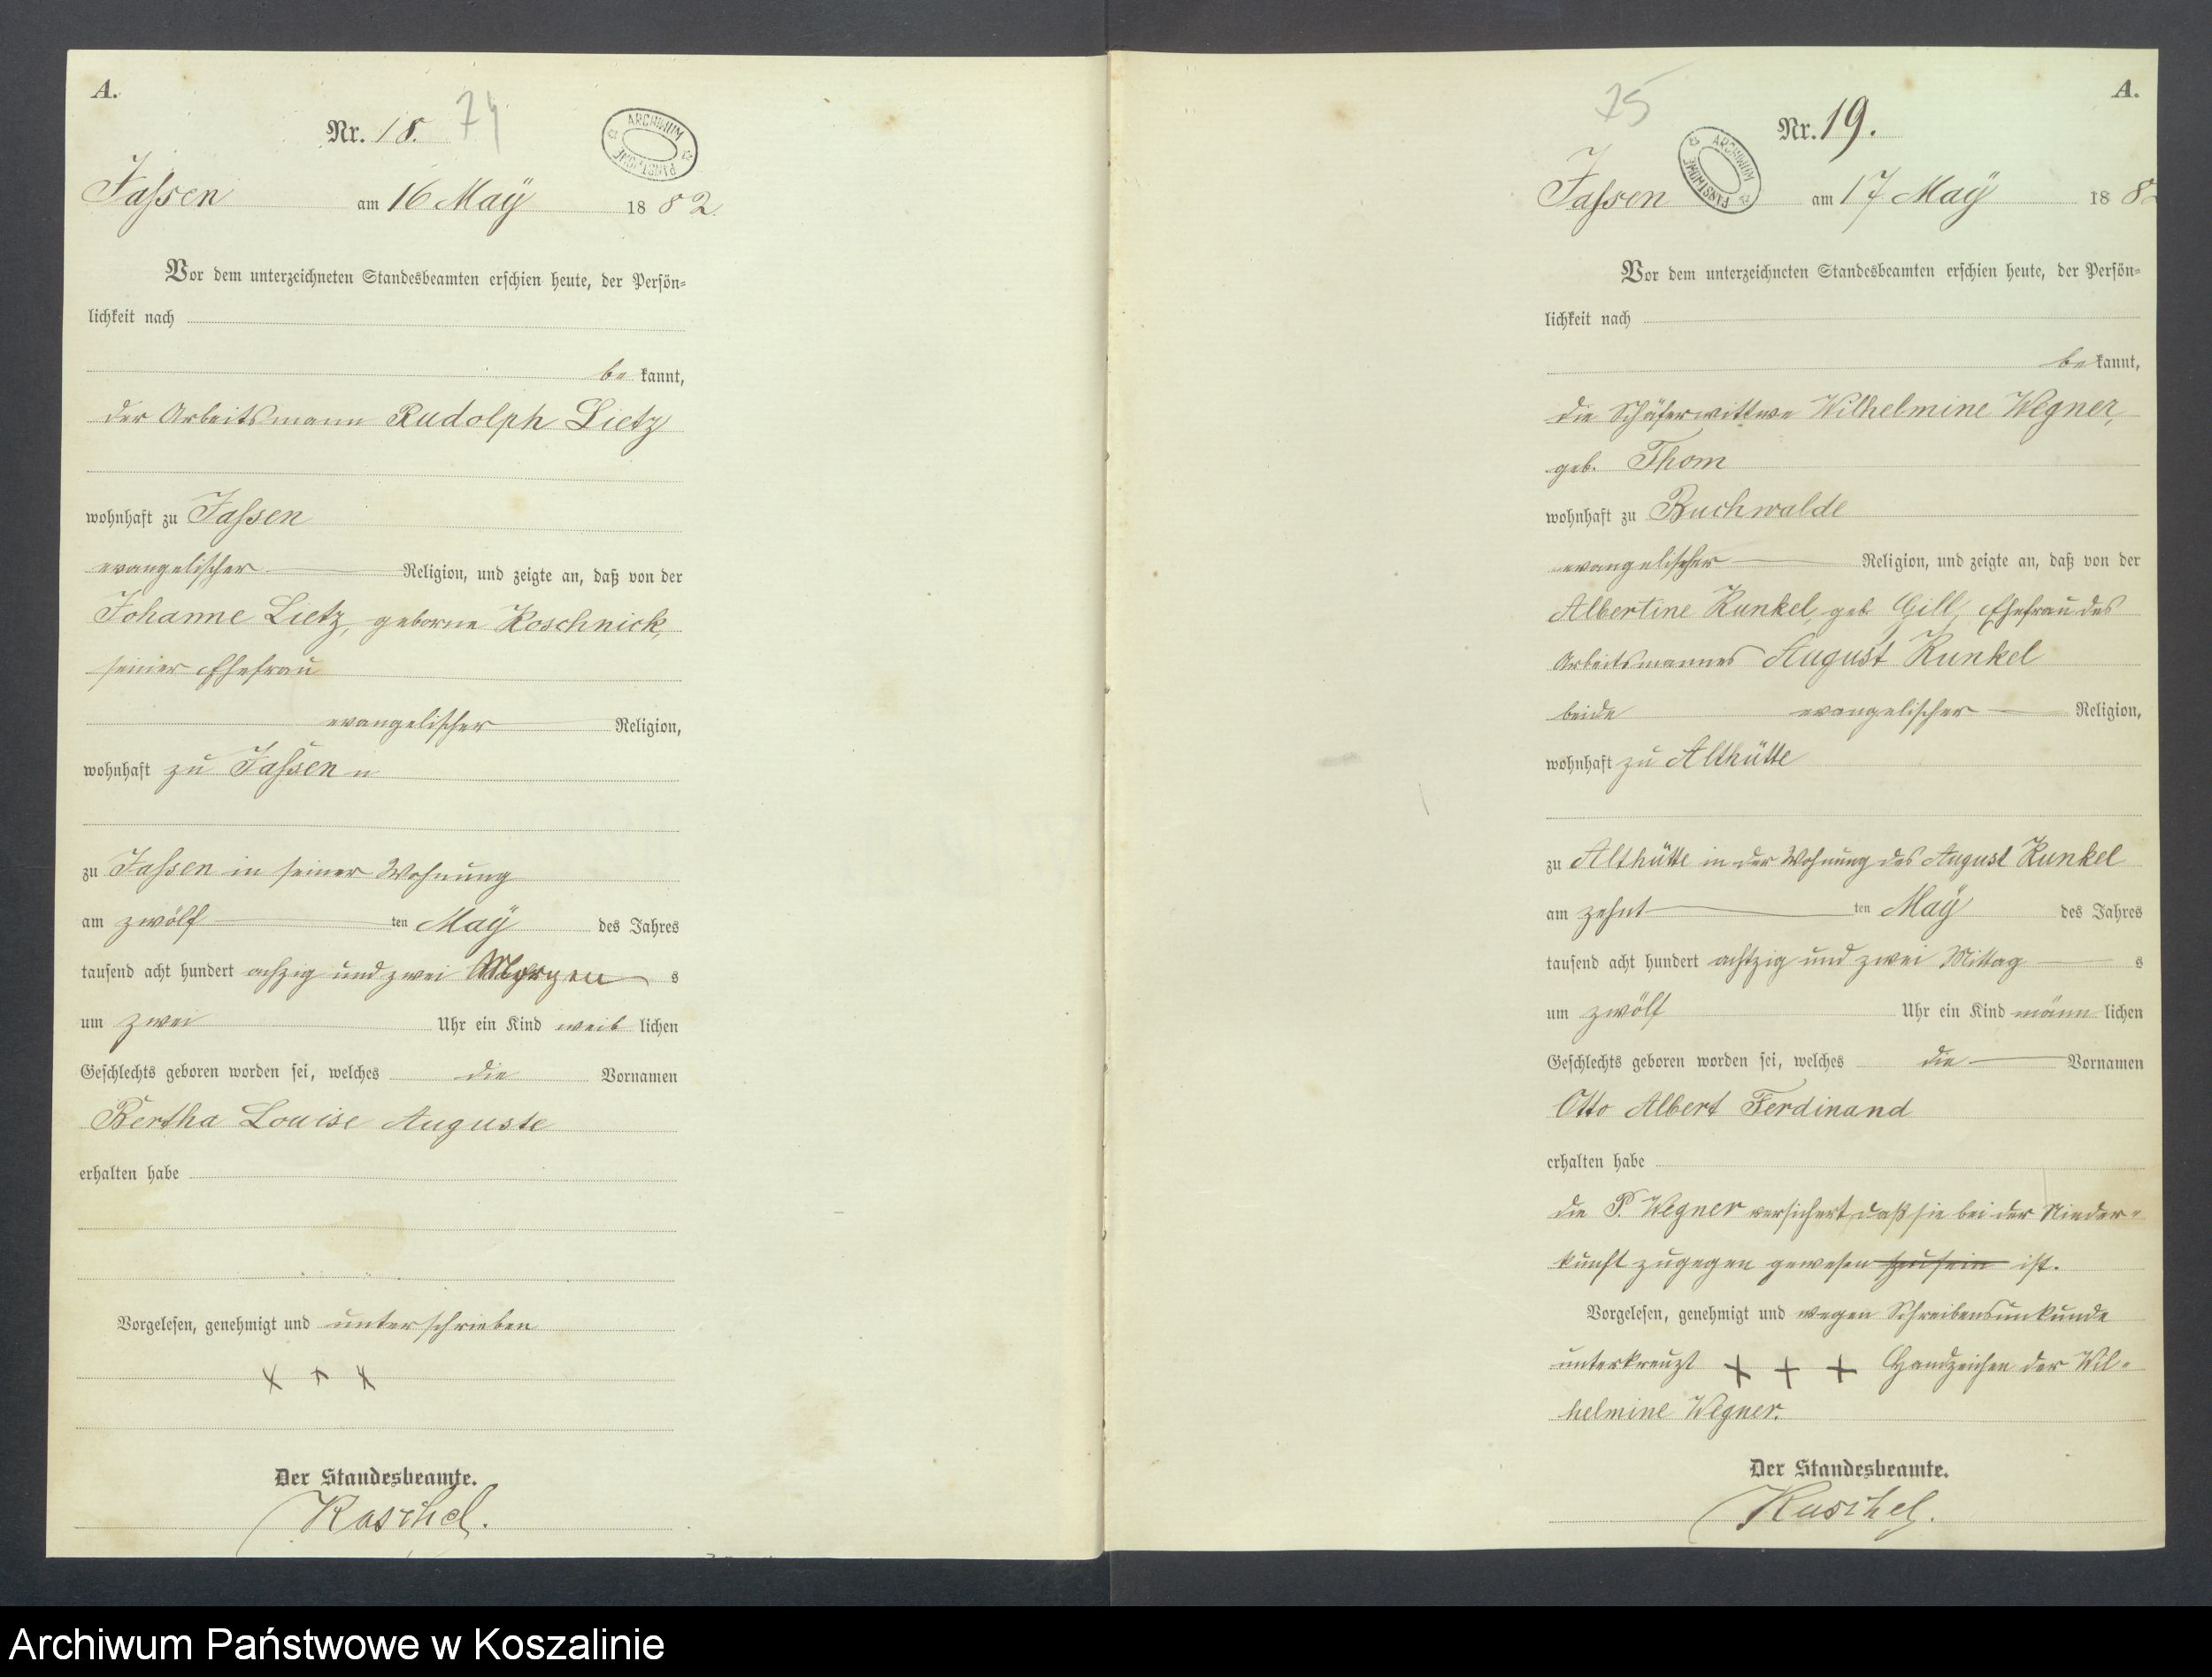 A.
Nr. 18. 74
ARCHIWUM PAŃSTWOWE
Jassen am 16 Maÿ 1882.
Vor dem unterzeichneten Standesbeamten erschien heute, der Persön=
lichkeit nach
be kannt,
der Arbeitsmann Rudolph Lietz
wohnhaft zu Jassen
evangelischer Religion, und zeigte an, daß von der
Johanne Lietz, geborne Koschnick,
seiner Ehefrau
evangelischer Religion,
wohnhaft zu Jassen
zu Jassen in seiner Wohnung
am zwölf ten Maÿ des Jahres
tausend acht hundert achzig und zwei Morgen s
um zwei Uhr ein Kind weib lichen
Geschlechts geboren worden sei, welches die Vornamen
Bertha Louise Auguste
erhalten habe
Vorgelesen, genehmigt und unterschrieben
+ + +
Der Standesbeamte.
Kaschel.
75 A.
Nr. 19.
ARCHIWUM PAŃSTWOWE
Jassen am 17 Maÿ 188
Vor dem unterzeichneten Standesbeamten erschien heute, der Persön=
lichkeit nach
be kannt,
die Schäferwittwe Wilhelmine Wegner,
geb. Thom
wohnhaft zu Buchwalde
evangelischer Religion, und zeigte an, daß von der
Albertine Runkel, geb Gill, Ehefrau des
Arbeitsmannes August Runkel
beide evangelischer Religion,
wohnhaft zu Althütte
zu Althütte in der Wohnung des August Runkel
am zehnt ten Maÿ des Jahres
tausend acht hundert achtzig und zwei Mittag s
um zwölf Uhr ein Kind männ lichen
Geschlechts geboren worden sei, welches die Vornamen
Otto Albert Ferdinand
erhalten habe
die Wegner versichert, daß sie bei der Nieder=
kunft zugegen gewesen zu sein ist.
Vorgelesen, genehmigt und wegen Schreibensunkunde
unterkreuzt + + + Handzeichen der Wil=
helmine Wegner.
Der Standesbeamte.
Kaschel.
Archiwum Państwowe w Koszalinie